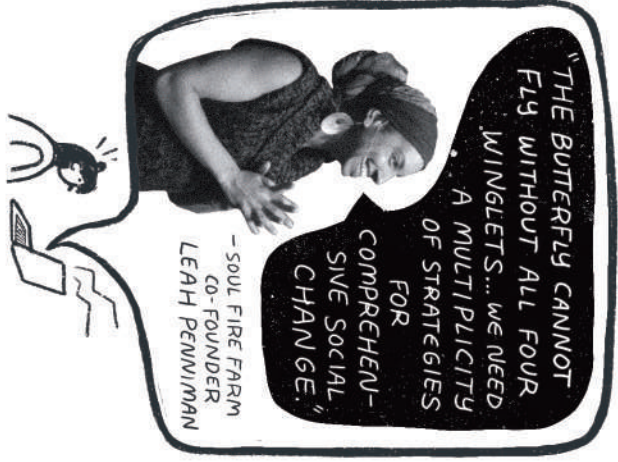 "THE BUTTERFLY CANNOT
FLY WITHOUT ALL FOUR
WINGLETS... WE NEED
A MULTIPLICITY
OF STRATEGIES
FOR
COMPREHEN-
SIVE SOCIAL
CHANGE."
- SOUL FIRE FARM
CO-FOUNDER
LEAH PENNIMAN